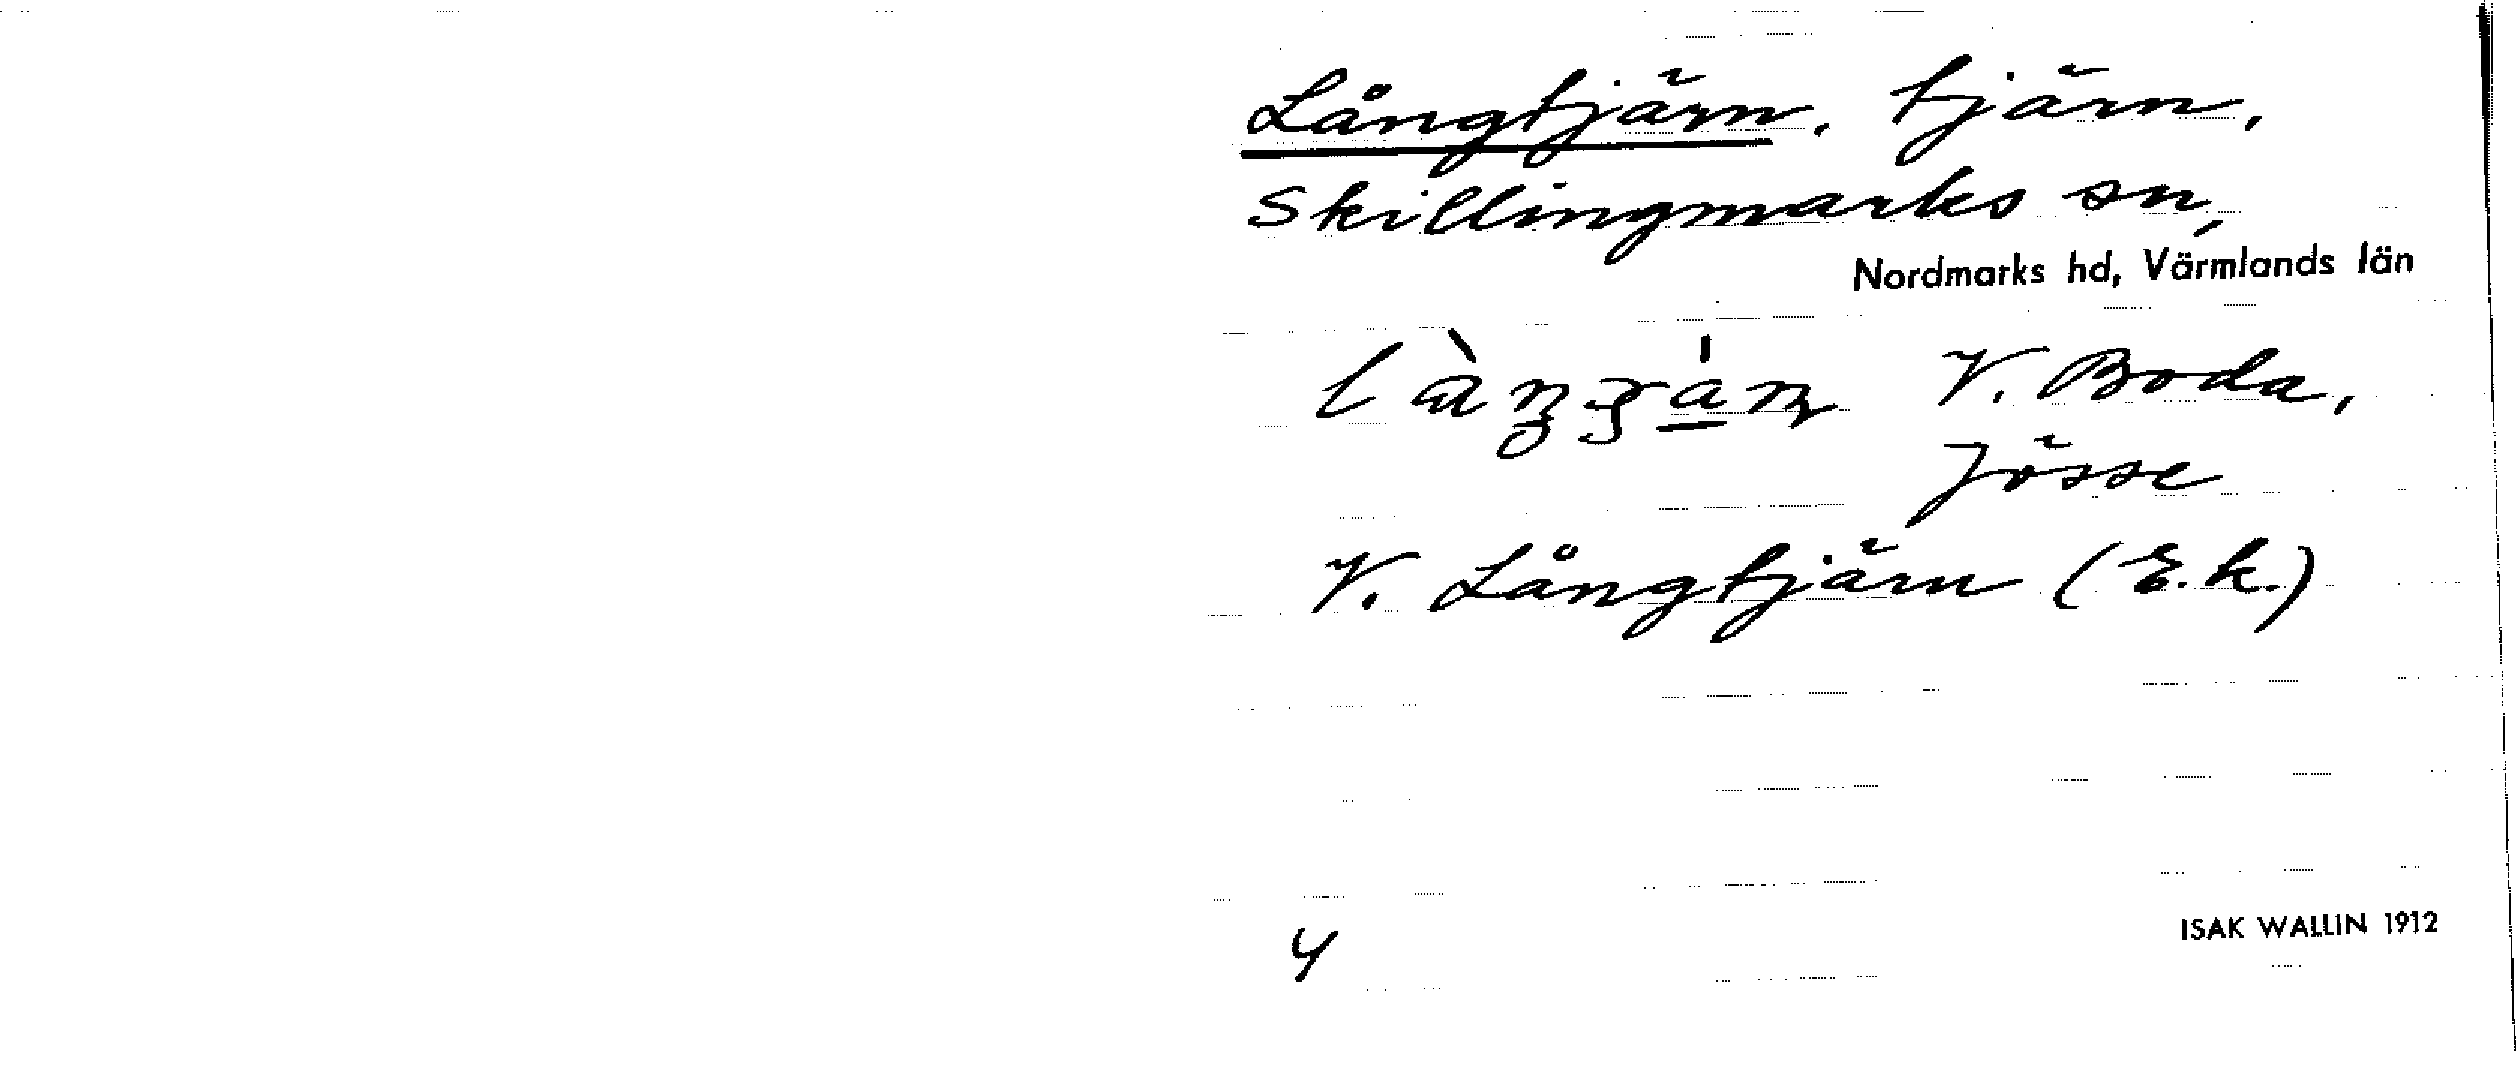 Långtjärn, tjärn,
Skillingmarks sn,
Nordmarks hd, Värmlands län
V. Boda,
Jösse
V. Långtjärn (E.k.)
4
ISAK WALLIN 1912